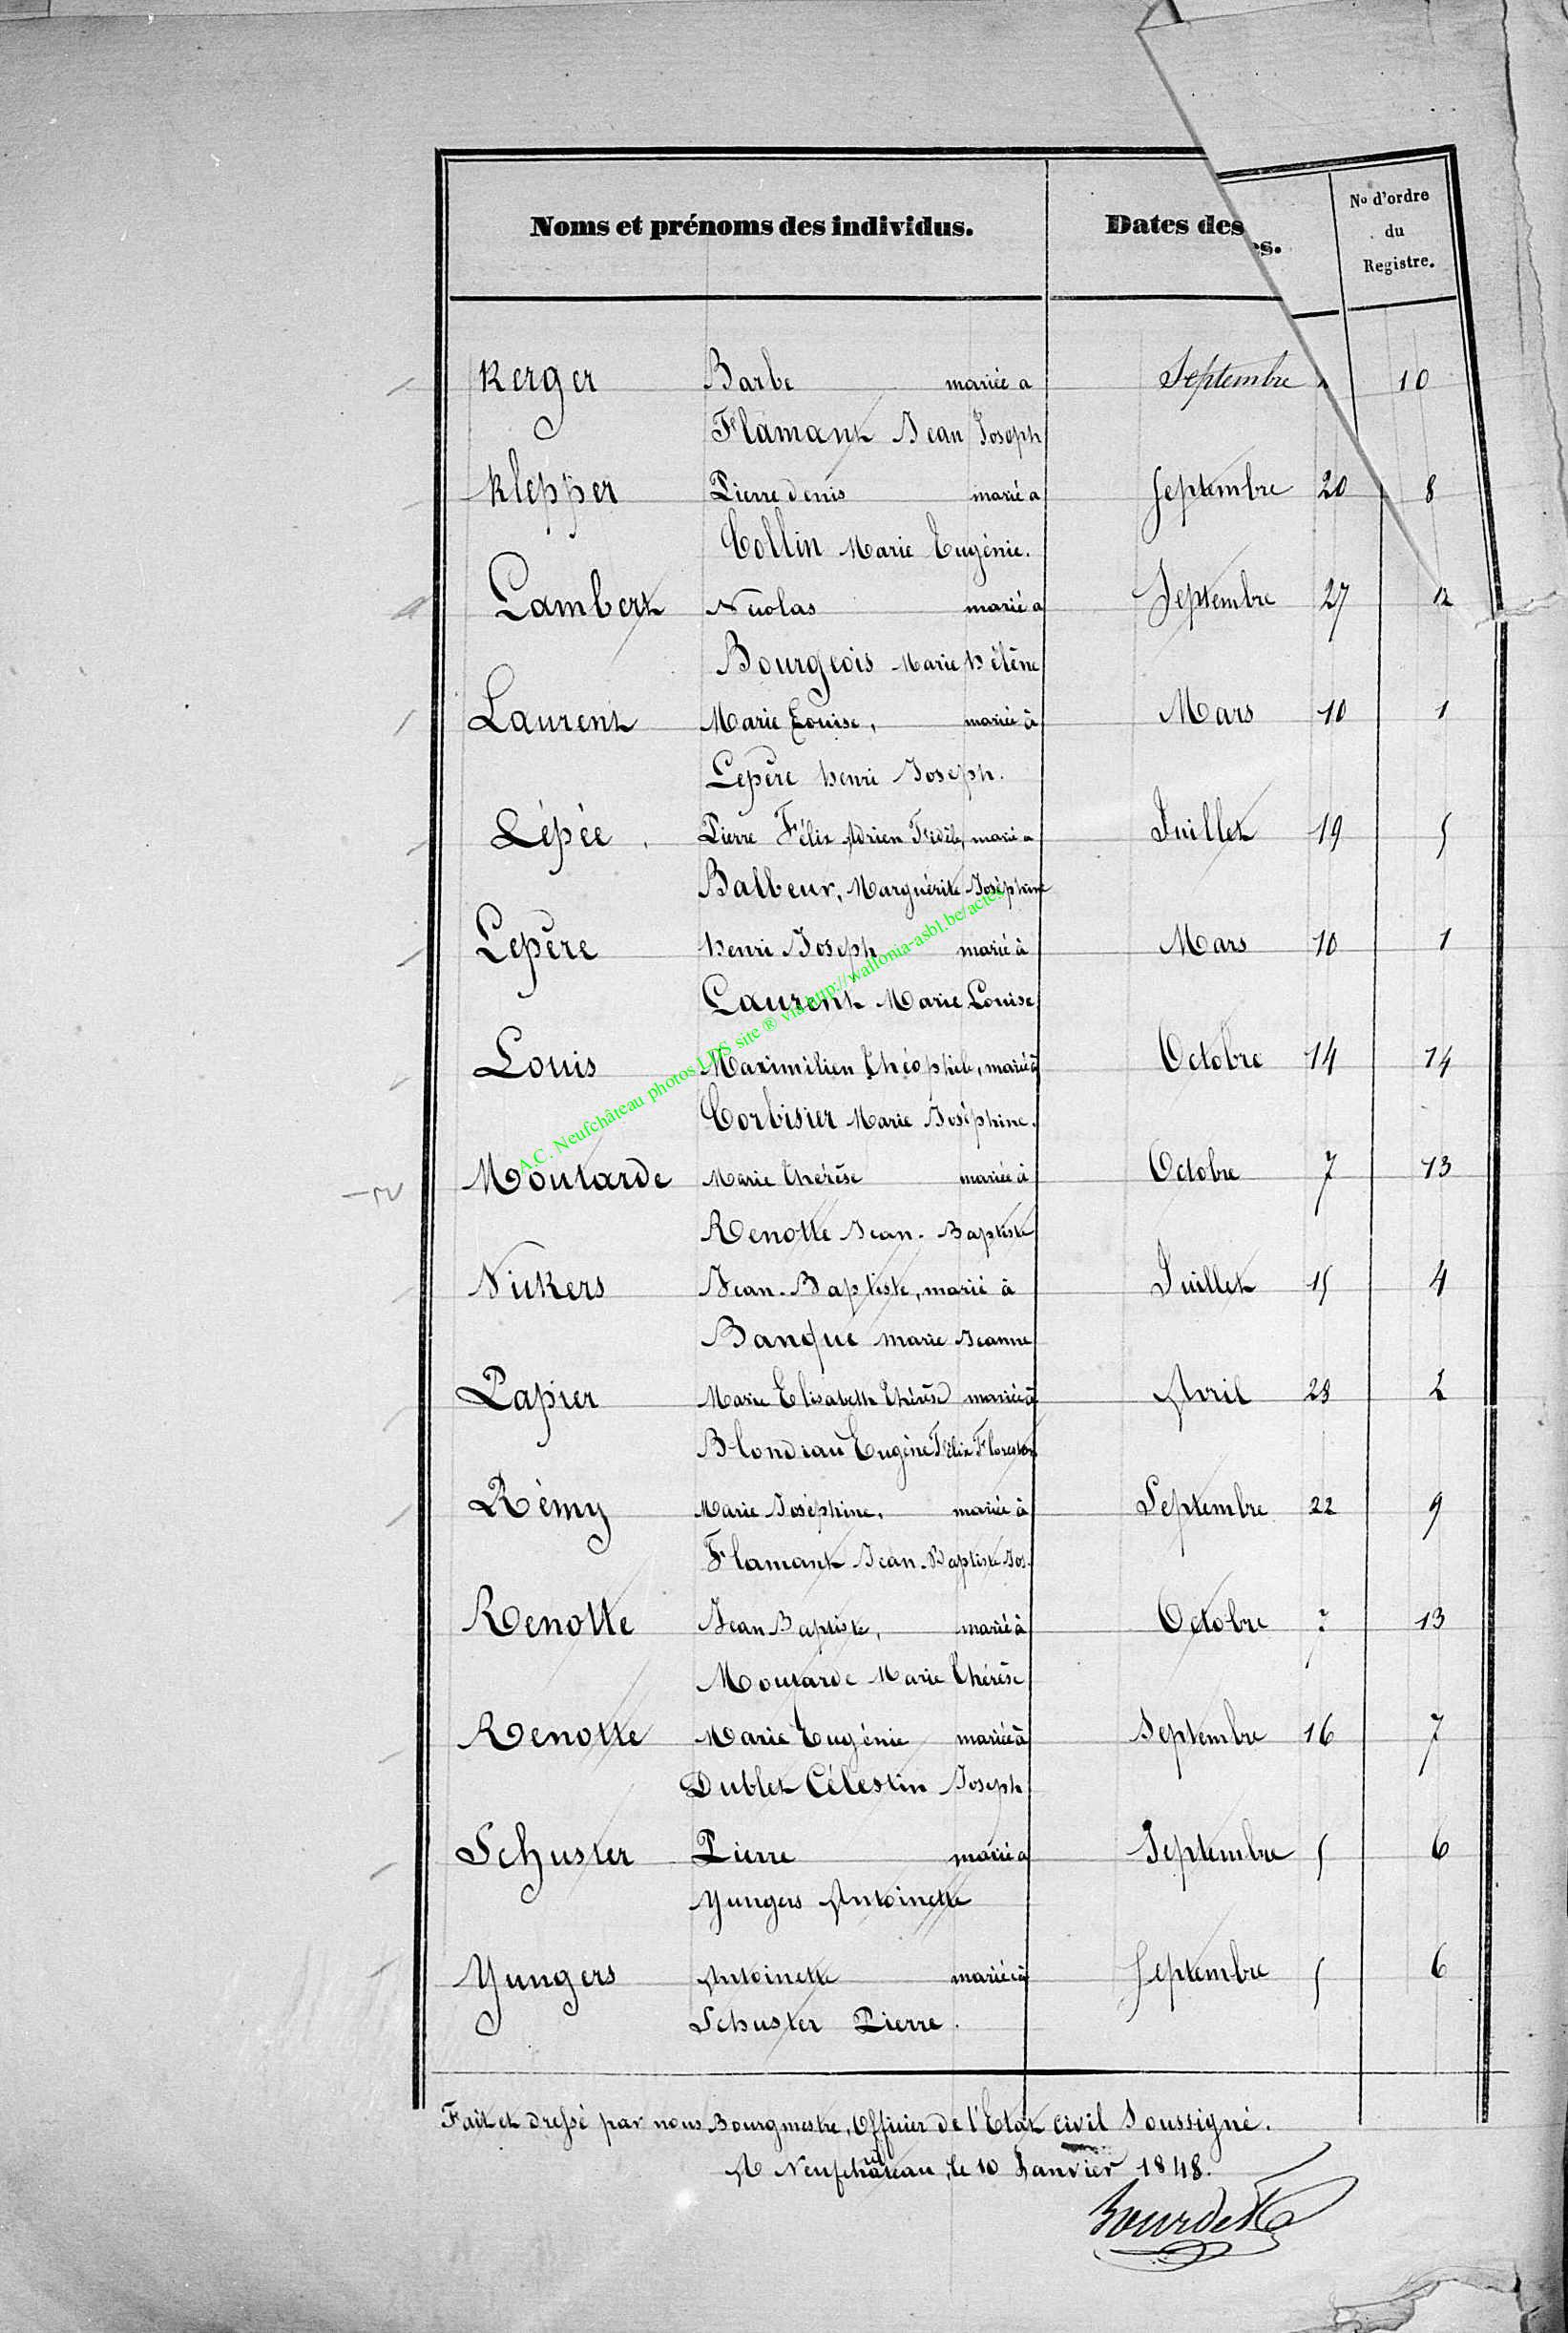 Noms et prénoms des individus. Dates des es. No d'ordre du Registre.
Kerger Barbe mariée a Septembre 10
Flamant Jean Joseph
Klepper Pierre denis marié a Septembre 20 8
Collin Marie Eugénie.
Lambert Nicolas marié a Septembre 27 12
Bourgeois Marie hélène
Laurent Marie Louise, mariée à Mars 10 1
Lepère henri Joseph.
Lépée, Pierre Félix Adrien Fidèle, marié a Juillet 19 5
Balbeur, Marguérite Joséphine
Lepère henri Joseph marié à Mars 10 1
Laurent Marie Louise
Louis Maximilien théophile, marié à Octobre 14 14
Corbisier Marie Joséphine.
Moutarde Marie thérèse mariée à Octobre 7 13
Renotte Jean-Baptiste
Nickers Jean-Baptiste, marié à Juillet 15 4
Banque Marie Jeanne
Papier Marie Elisabeth thérèse mariée à Avril 28 2
Blondiau Eugène Félix Floreston
Rémy Marie Joséphine, mariée à Septembre 22 9
Flamant Jean-Baptiste Jos.
Renotte Jean Baptiste, marié à Octobre 7 13
Moutarde Marie thérèse
Renotte Marie Eugénie mariée à Septembre 16 7
Dublet Célestin Joseph
Schuster Pierre marié a Septembre 5 6
Yungers Antoinette
Yungers Antoinette mariée à Septembre 5 6
Schuster Pierre.
Fait et dressé par nous Bourgmestre, Officier de l'Etat civil Soussigné.
A Neufchâteau, le 10 Janvier 1848.
A.C. Neufchâteau photos LDS site ® via http://wallonia-asbl.be/actes